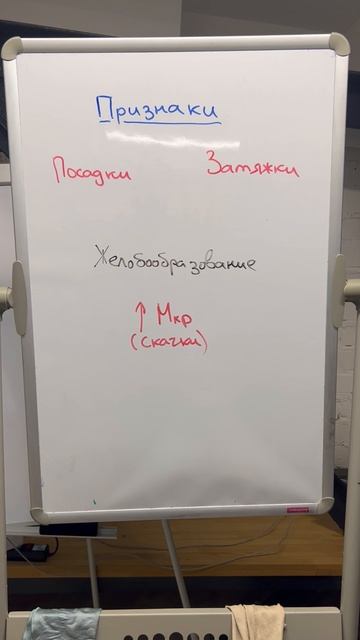 Признаки
Посадки Затяжки
Желобообразование
↑ Мкр
(скачки)